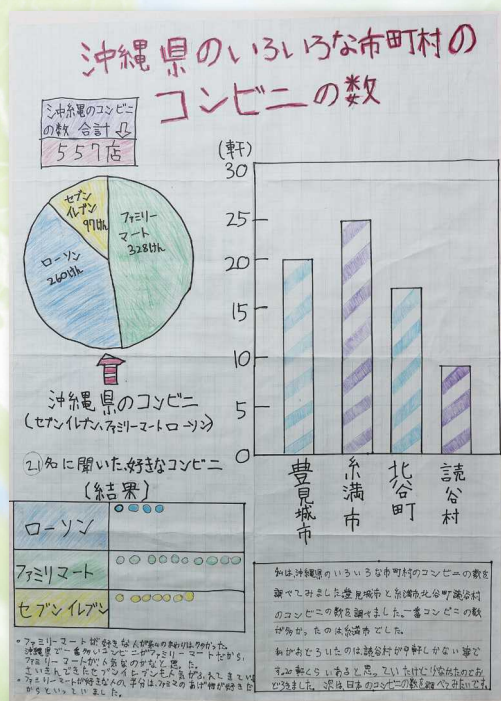 沖縄県のいろいろな市町村の
コンビニの数
沖縄のコンビニ
の数 合計
557店
セブン
イレブン
97けん
ファミリー
マート
328けん
ローソン
260けん
沖縄県のコンビニ
(セブンイレブン、ファミリーマートローソン)
(軒)
30
25
20
15
10
5
0
豊見城市
糸満市
北谷町
読谷村
21名に聞いた、好きなコンビニ
(結果)
ローソン
ファミリマート
セブンイレブン
・ファミリーマートが好きな人が
沖縄県で一番多いコンビニがファミリーマートだから、
ファミリーマートが人気なのかなと思った。
・ファミリーマートが好きな人の半分は、ファミマのあげ物が好きだ
からといっていました。
私は、沖縄県のいろいろな市町村のコンビニの数を
調べてみました。豊見城市と糸満市北谷町読谷村
のコンビニの数を調べました。一番コンビニの数
が多かったのは糸満市でした。
わたしがおどろいたのは、読谷村が9軒しかない事で
す。
どろきました。次は、日本のコンビニの数を調べてみたいです。